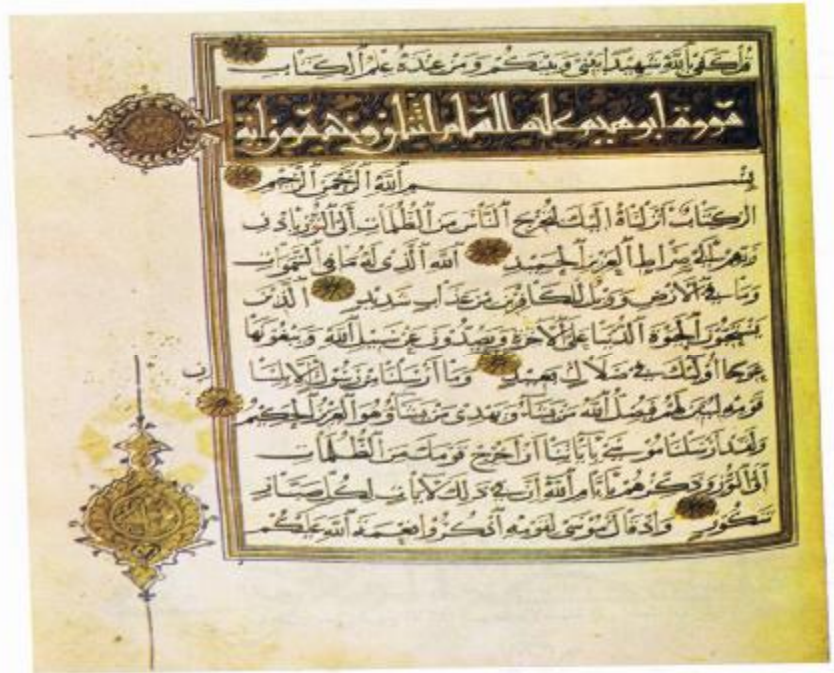 قل كفى بالله شهيدا بيني وبينكم ومن عنده علم الكتاب
سورة ابرهيم عليه السلام اثنان وخمسون اية
بسم الله الرحمن الرحيم
الر كتاب أنزلناه اليك لتخرج الناس من الظلمات الى النور باذن
ربهم الى صراط العزيز الحميد الله الذى له ما في السموات
وما في الارض وويل للكافرين من عذاب شديد الذين
يستحبون الحيوة الدنيا على الاخرة ويصدون عن سبيل الله ويبغونها
عوجا اولئك في ضلال بعيد وما أرسلنا من رسول الا بلسان
قومه ليبين لهم فيضل الله من يشاء ويهدى من يشاء وهو العزيز الحكيم
ولقد ارسلنا موسى باياتنا ان اخرج قومك من الظلمات
الى النور وذكرهم بايام الله ان في ذلك لايات لكل صبار
شكور واذ قال موسى لقومه اذكروا نعمة الله عليكم